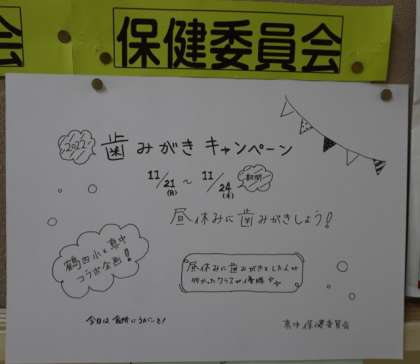 保健委員会
会
会
2022
歯みがきキャンペーン
11/21(月) ~ 11/24(木)
期間
昼休みに歯みがきしよう!
鶴田小と真中
コラボ企画!
昼休みに歯みがきをした人が
多かったクラスが優勝
今日は
保健委員会